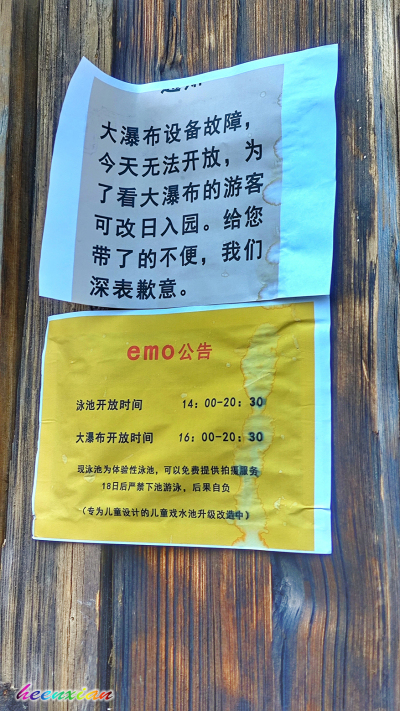 大瀑布设备故障，
今天无法开放，为
了看大瀑布的游客
可改日入园。给您
带了的不便，我们
深表歉意。
emo公告
泳池开放时间 14：00-20：30
大瀑布开放时间 16：00-20：30
现泳池为体验性泳池，可以免费提供拍摄服务
18日后严禁下池游泳，后果自负
（专为儿童设计的儿童戏水池升级改造中）
heenxian